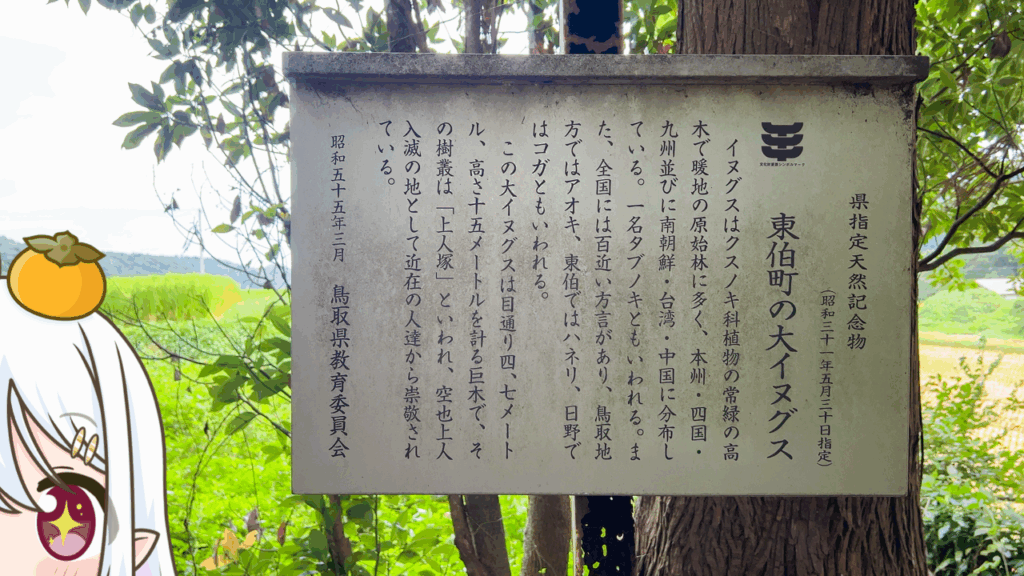 県指定天然記念物
(昭和三十一年五月三十日指定)
東伯町の大イヌグス
イヌグスはクスノキ科植物の常緑の高
木で暖地の原始林に多く、本州・四国・
九州並びに南朝鮮・台湾・中国に分布し
ている。一名タブノキともいわれる。ま
た、全国には百近い方言があり、鳥取地
方ではアオキ、東伯ではハネリ、日野で
はコガともいわれる。
この大イヌグスは目通り四、七メート
ル、高さ十五メートルを計る巨木で、そ
の樹叢は「上人塚」といわれ、空也上人
入滅の地として近在の人達から崇敬され
ている。
昭和五十五年三月 鳥取県教育委員会